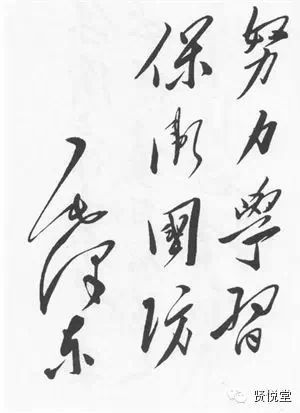 努力學習
保衛國防
毛澤东
贤悦堂